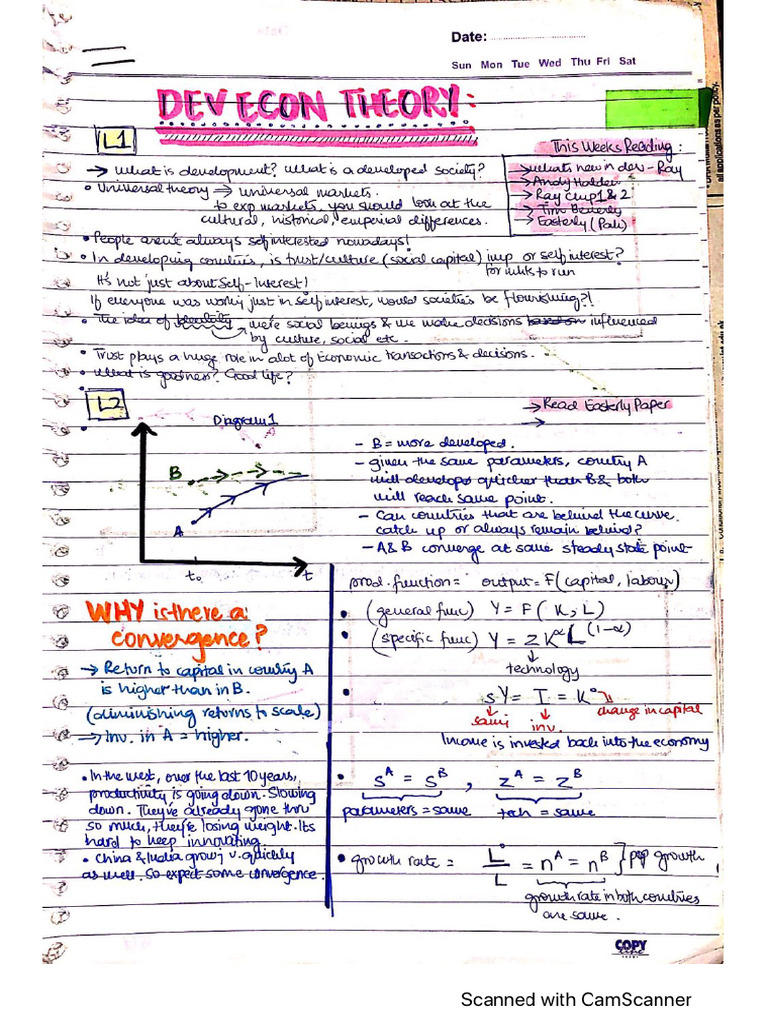 Date:
Sun Mon Tue Wed Thu Fri Sat
DEV ECON THEORY:
L1
This Weeks Reading:
→ Whats new in dev - Ray
→ Andy Haldane
→ Ray Chp 1 & 2
→ Tim Besley
→ Easterly (Pak)
→ What is development? What is a developed society?
• Universal theory ⇒ universal markets.
to exp markets, you should look at the
cultural, historical, emperial differences.
• People aren't always self interested nowadays!
• In developing countries, is trust/culture (social capital) imp or self interest?
for mkts to run
It's not just about Self-Interest!
If everyone was workij just in self interest, would societies be flourishing?!
• The idea of identity → we're social beings & we make decisions based on influenced
by culture, social etc.
• Trust plays a huge role in alot of Economic transactions & decisions.
• What is goodness? Good life?
L2
→ Read Easterly Paper
→
Diagram 1
B
A
t₀
t
- B = more developed.
- given the same parameters, country A
will develop quicker than B & both
will reach same point.
- Can countries that are behind the curve
catch up or always remain behind?
- A & B converge at same steady state point
WHY is there a
convergence?
→ Return to capital in country A
is higher than in B.
(diminishing returns to scale)
⇒ Inv. in A = higher.
• In the west, over the last 10 years,
productivity is going down. Slowing
down. They've already gone thru
so much, they're losing weight. Its
hard to keep innovating.
• China & India growj v. quickly
as well. So expect some convergence.
prod. function = output = F(capital, labour)
• (general func) Y = F(K, L)
• (specific func) Y = Z K^α L^(1-α)
↓
technology
• sY = I = K°
savi inv. change in capital
Income is invested back into the economy
• s^A = s^B , z^A = z^B
parameters = same tech = same
• growth rate = L°/L = n^A = n^B } pop growth
growth rate in both countries
are same.
COPY
Scanned with CamScanner